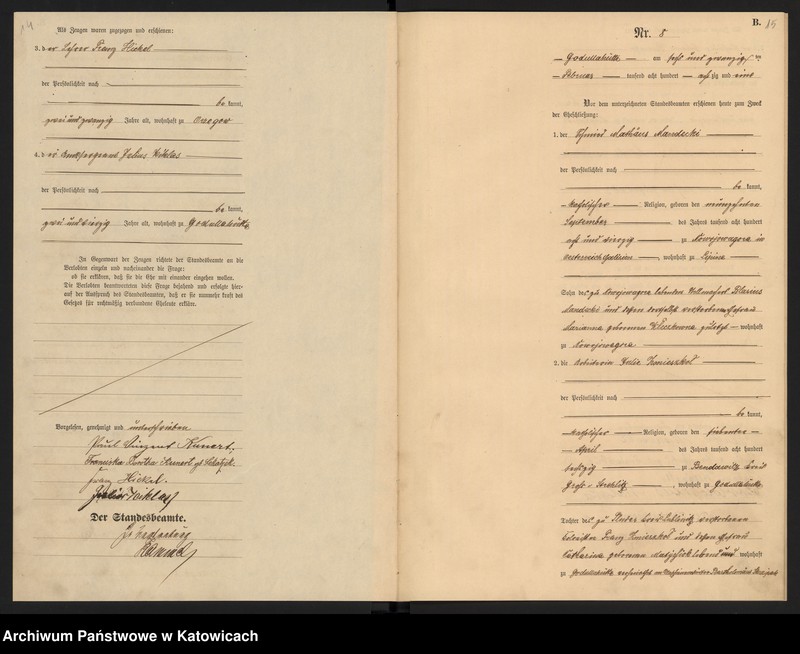 14
Als Zeugen waren zugezogen und erschienen:
3. der Lehrer Franz Hickel
der Persönlichkeit nach
be kannt,
zwei und zwanzig Jahre alt, wohnhaft zu Orzegow
4. der Amtssergeant Julius Niklas
der Persönlichkeit nach
be kannt,
zwei und vierzig Jahre alt, wohnhaft zu Godullahütte
In Gegenwart der Zeugen richtete der Standesbeamte an die
Verlobten einzeln und nacheinander die Frage:
ob sie erklären, daß sie die Ehe mit einander eingehen wollen.
Die Verlobten beantworteten diese Frage bejahend und erfolgte hier-
auf der Ausspruch des Standesbeamten, daß er sie nunmehr kraft des
Gesetzes für rechtmäßig verbundene Eheleute erkläre.
Vorgelesen, genehmigt und unterschrieben
Paul Vincent Kunert.
Franziska Kunert
Franz Hickel.
Julius Niklas
Der Standesbeamte.
B. 15
Nr. 8
Godullahütte am sechs und zwanzigsten
Februar tausend acht hundert achtzig und eins
Vor dem unterzeichneten Standesbeamten erschienen heute zum Zweck
der Eheschließung:
1. der Schmied Mathäus
der Persönlichkeit nach
be kannt,
katholischer Religion, geboren den neunzehnten
September des Jahres tausend acht hundert
acht und vierzig zu Nowejowagora in
Oesterreich Galizien, wohnhaft zu Lipine
Sohn des zu Nowejowagora lebenden Blasius
und dessen daselbst verstorbenen Ehefrau
Marianna geborenen zuletzt wohnhaft
zu Nowejowagora
2. die Arbeiterin Julie Konieczkol
der Persönlichkeit nach
be kannt,
katholischer Religion, geboren den siebenten
April des Jahres tausend acht hundert
sechzig zu Bendawitz Kreis
Groß Strehlitz, wohnhaft zu Godullahütte
Tochter des zu Kreis verstorbenen
Franz Konieczkol und dessen Ehefrau
Katharina geborenen lebend und wohnhaft
zu Godullahütte
Archiwum Państwowe w Katowicach